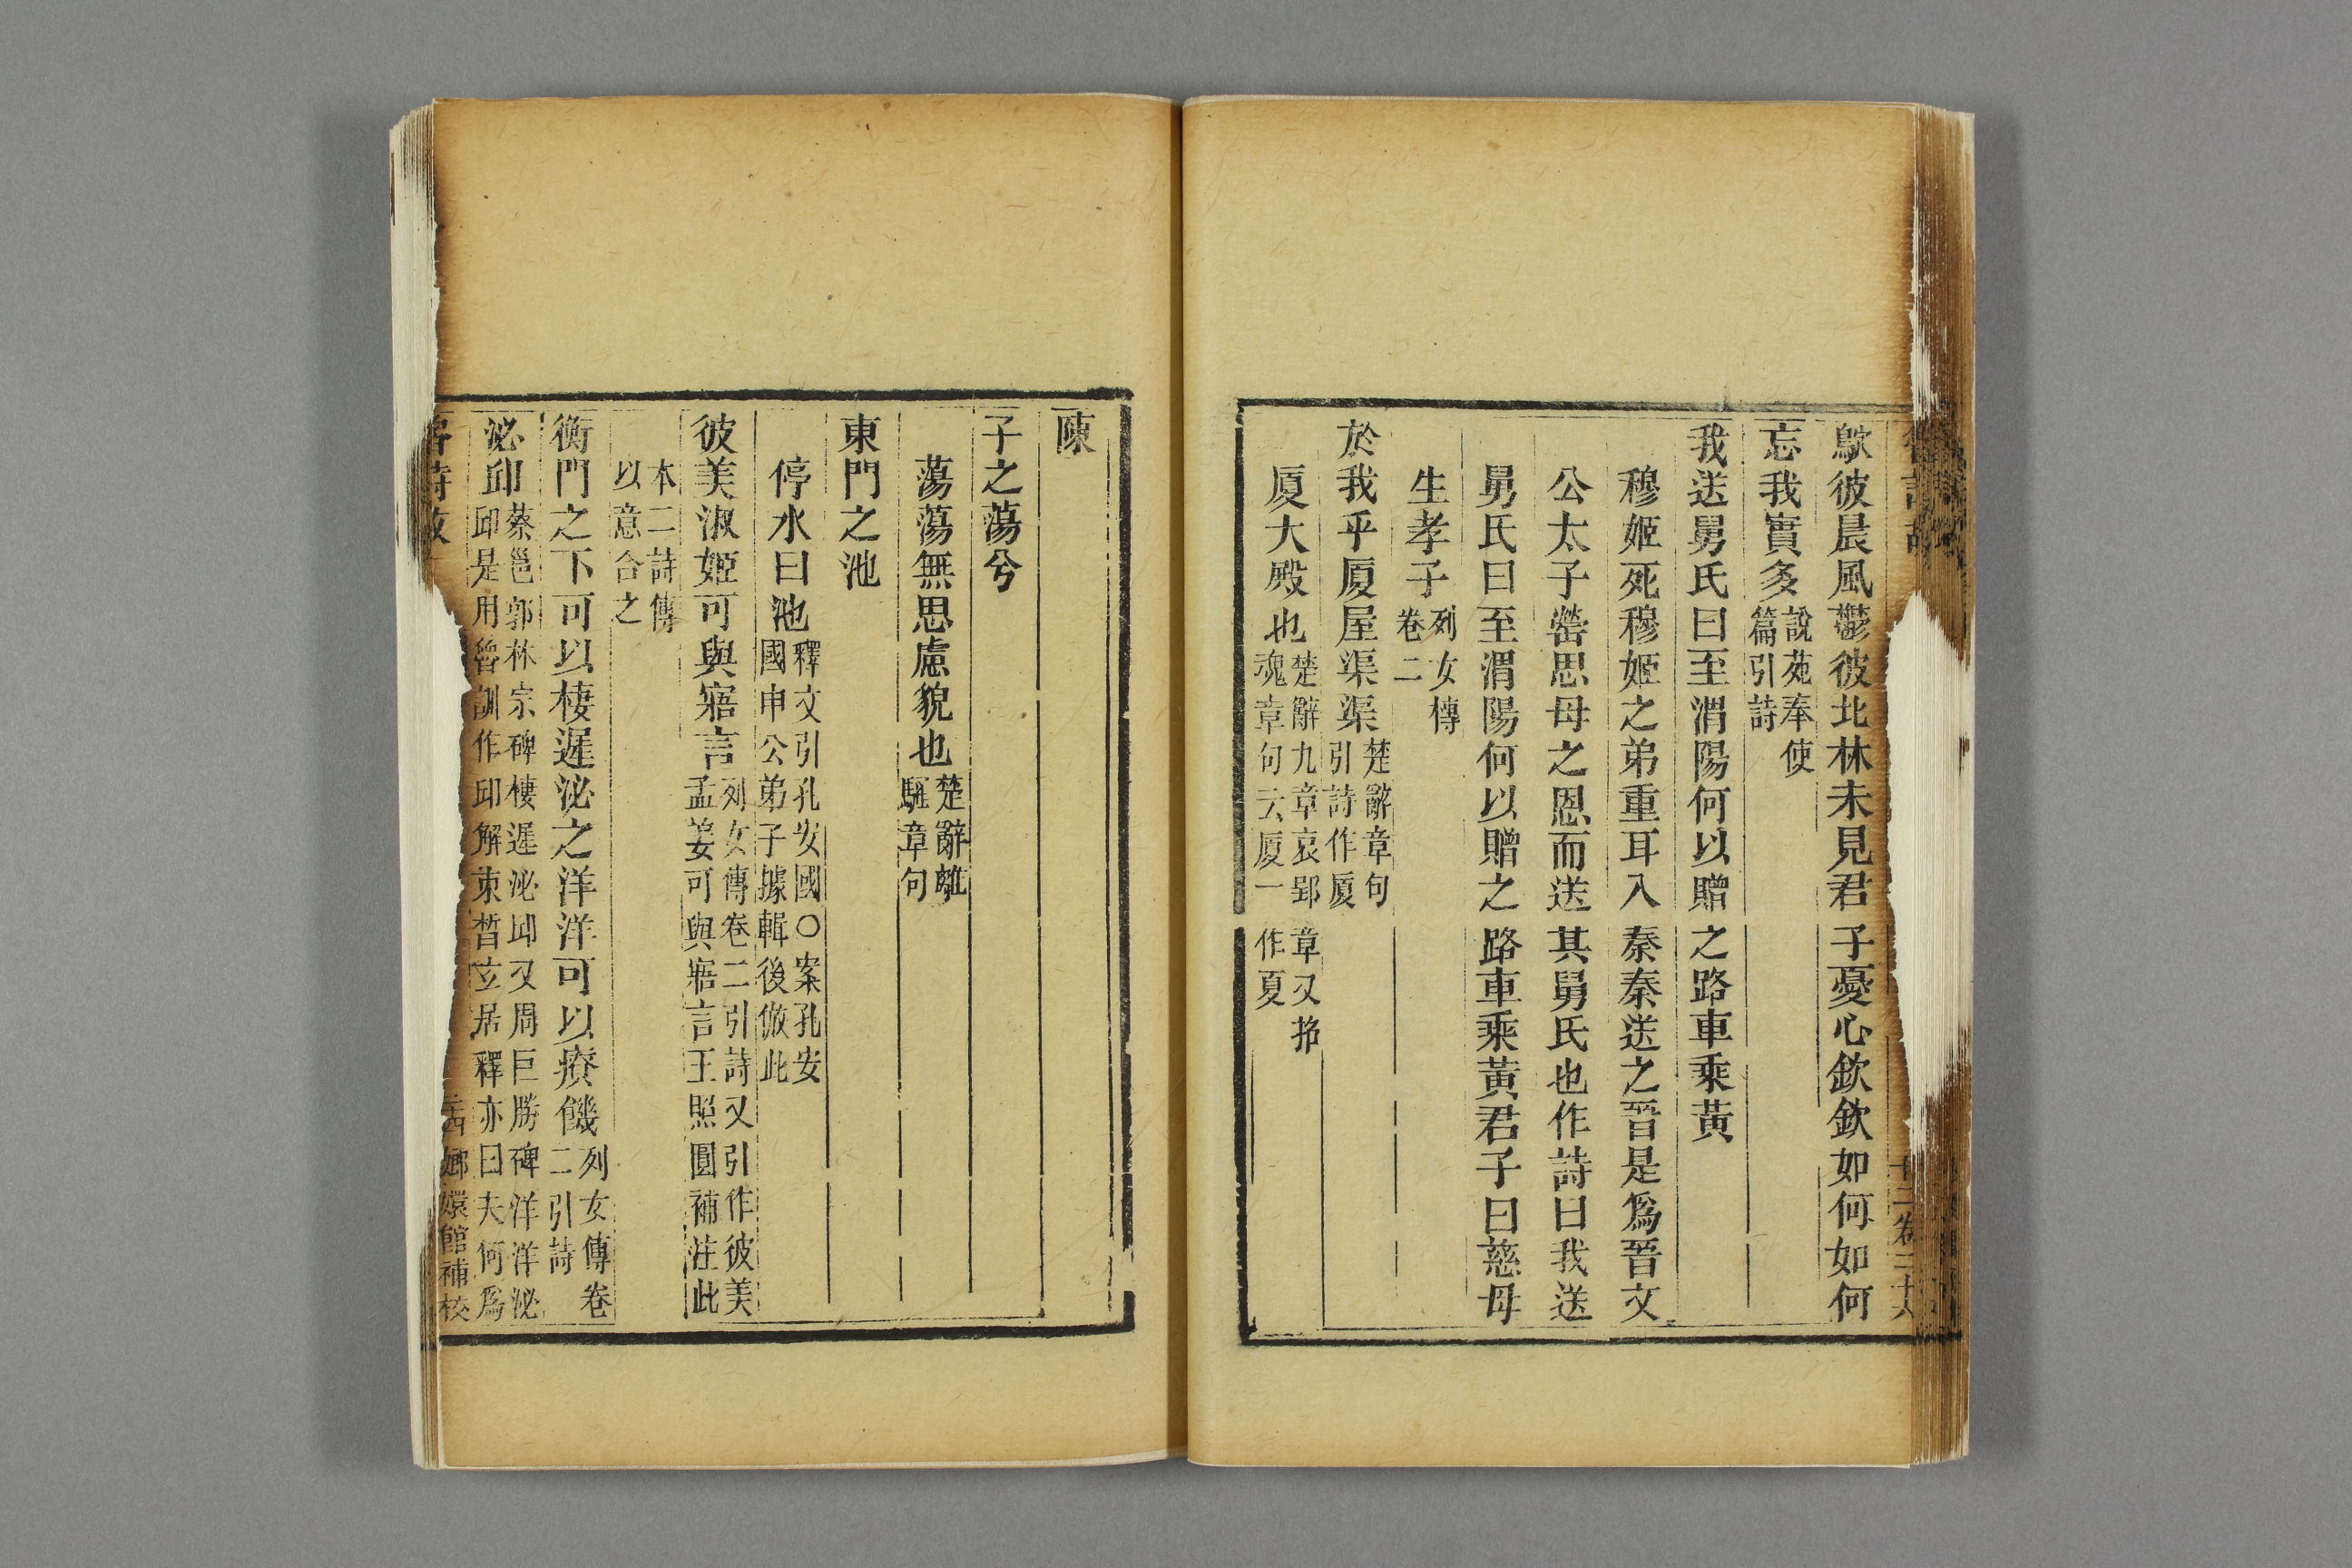 鴥彼晨風鬱彼北林未見君子憂心欽欽如何如何
忘我實多說苑奉使篇引詩
我送舅氏曰至渭陽何以贈之路車乘黃
穆姬死穆姬之弟重耳入秦秦送之晉是爲晉文
公太子罃思母之恩而送其舅氏也作詩曰我送
舅氏曰至渭陽何以贈之路車乘黃君子曰慈母
生孝子列女傳卷二
於我乎厦屋渠渠楚辭章句引詩作厦
厦大殿也楚辭九章哀郢章又招魂章句云厦一作夏
陳
子之蕩兮
蕩蕩無思慮貌也楚辭離騷章句
東門之池
停水曰池釋文引孔安國○案孔安國申公弟子據輯後倣此
彼美淑姬可與寤言列女傳卷二引詩又引作彼美孟姜可與寤言王照圓補注此
本二詩傳以意合之
衡門之下可以棲遲泌之洋洋可以療饑列女傳卷二引詩
泌邱蔡邕郭林宗碑棲遲泌邱又周巨勝碑洋洋泌邱是用魯訓作邱解束晳玄居釋亦曰夫何爲
嫏嬛館補校